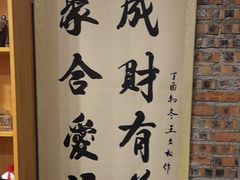 聚合愛
成財有
丁酉初冬王
作